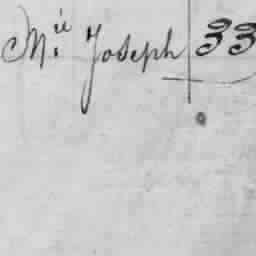 M.ie Joseph 33